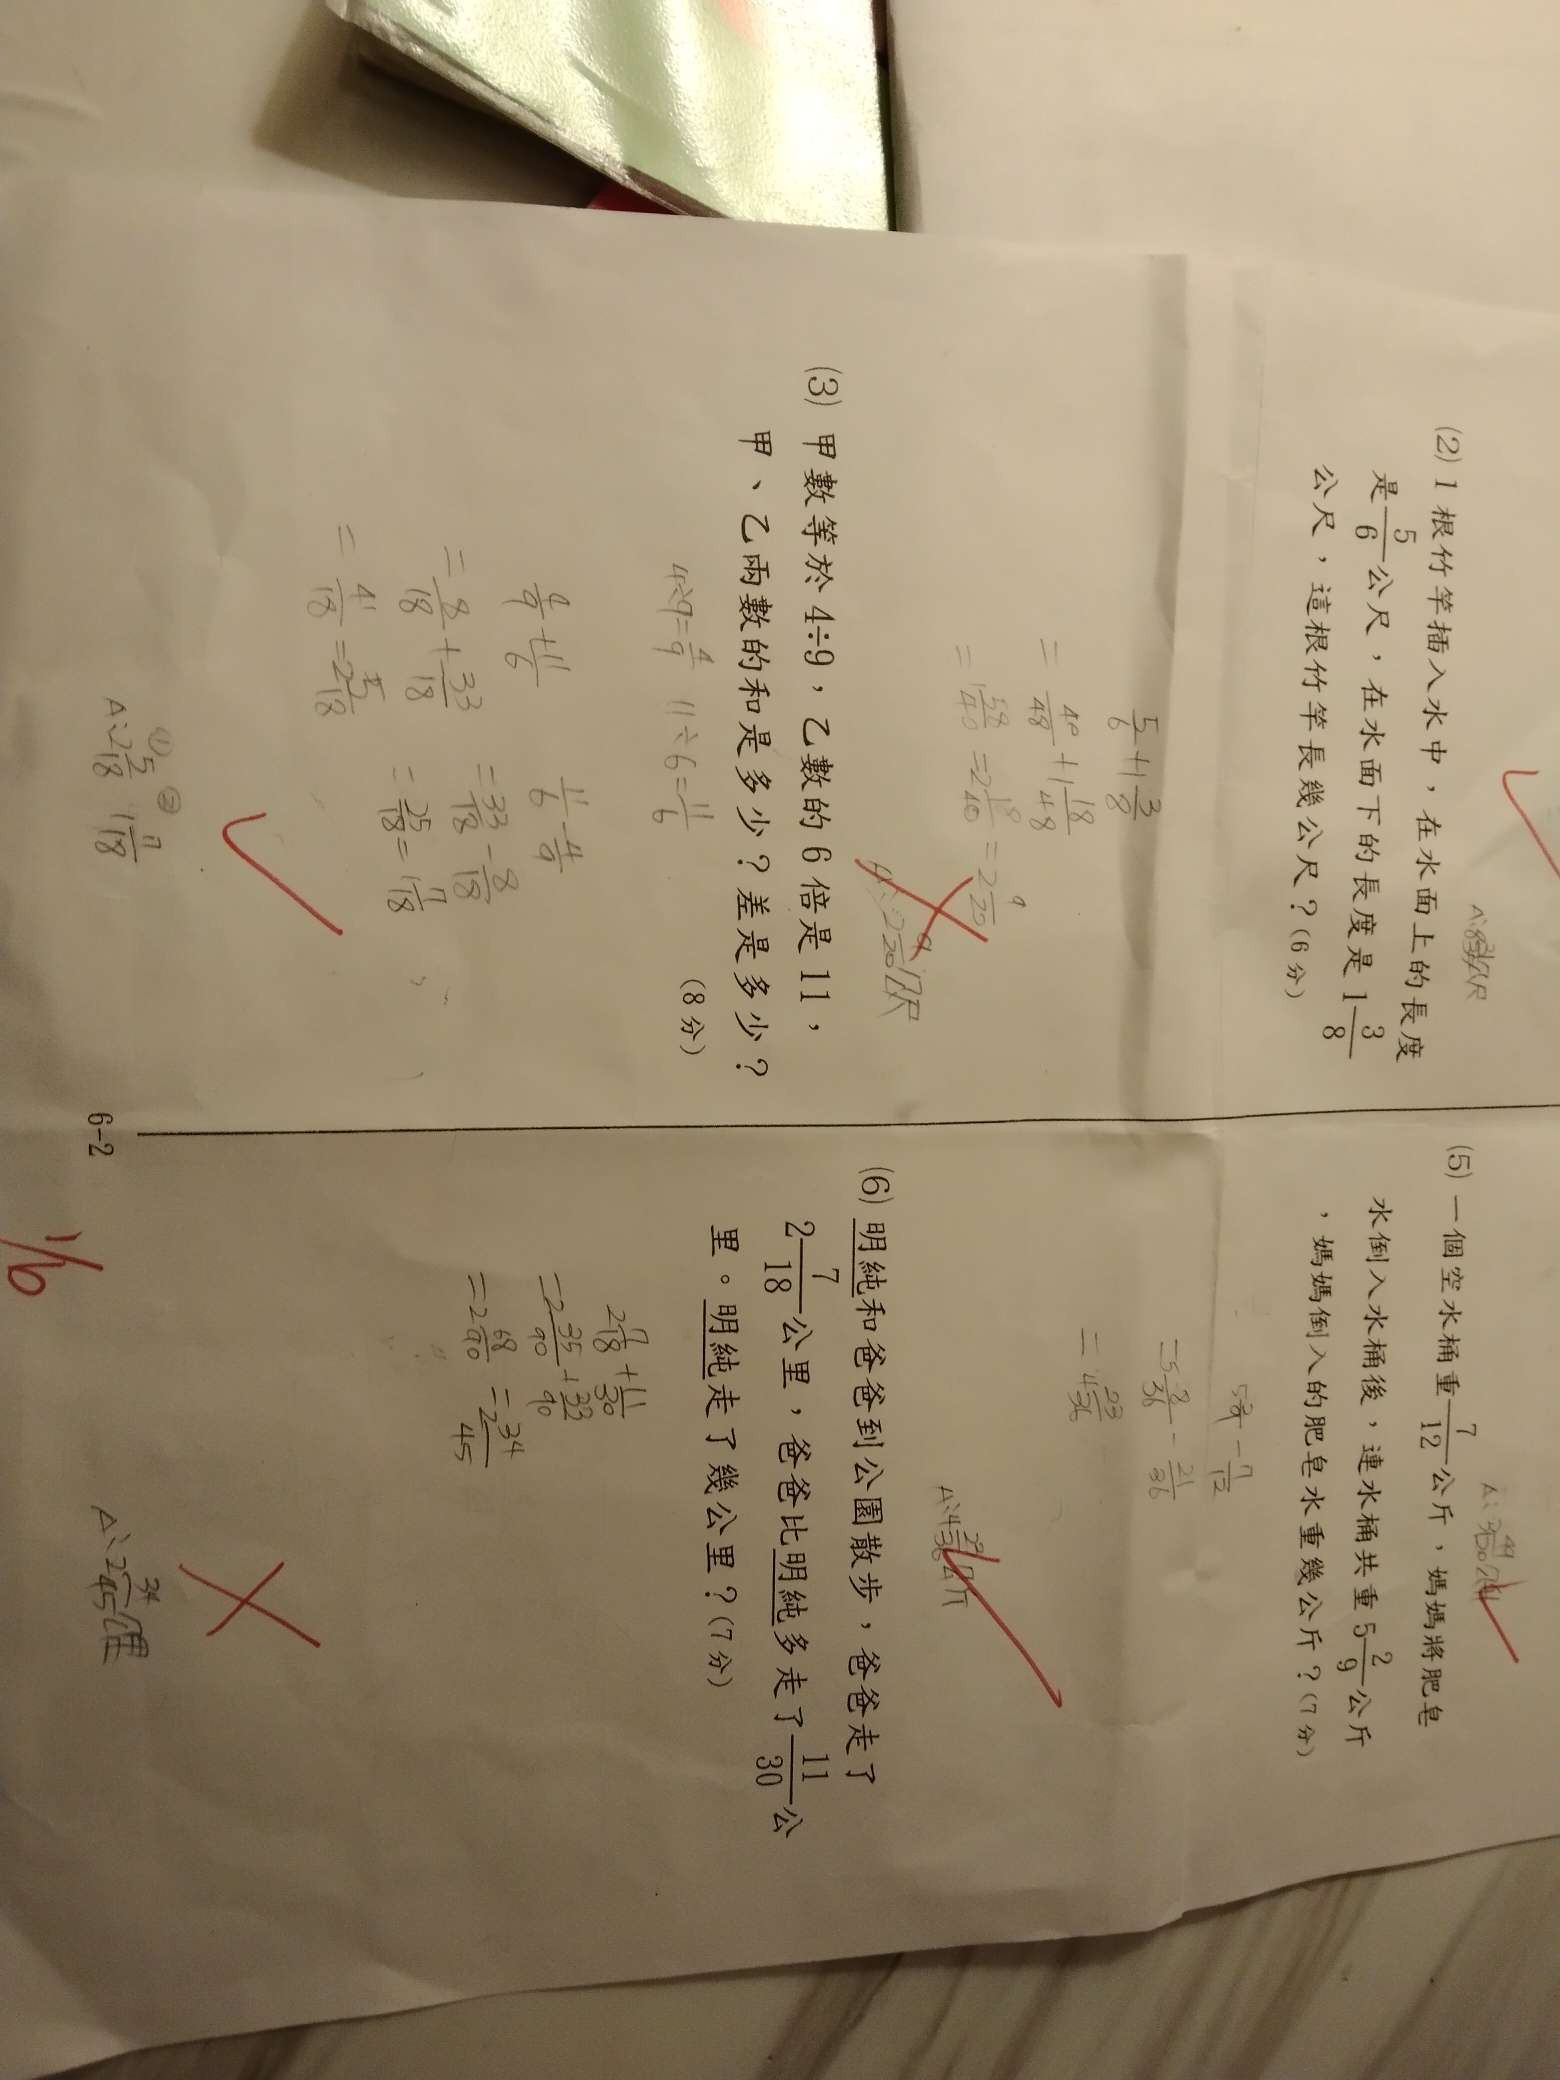 A:
(2) 1根竹竿插入水中，在水面上的長度
是5/6公尺，在水面下的長度是1 3/8
公尺，這根竹竿長幾公尺？(6分)
5/6+1 3/8
=40/48+1 18/48
=1 58/40=2 18/40=2 9/20
A:2 9/20公尺
(3) 甲數等於4÷9，乙數的6倍是11，
甲、乙兩數的和是多少？差是多少？
(8分)
4÷9=4/9 11÷6=11/6
4/9+11/6
=8/18+33/18
=41/18=2 5/18
11/6-4/9
=33/18-8/18
=25/18=1 7/18
① ②
A:2 5/18 1 7/18
A:
(5) 一個空水桶重7/12公斤，媽媽將肥皂
水倒入水桶後，連水桶共重5 2/9公斤
，媽媽倒入的肥皂水重幾公斤？(7分)
5 2/9-7/12
=5 8/36-21/36
=4 23/36
A:4 23/36公斤
(6) 明純和爸爸到公園散步，爸爸走了
2 7/18公里，爸爸比明純多走了11/30公
里。明純走了幾公里？(7分)
2 7/18+11/30
=2 35/90+33/90
=2 68/90=2 34/45
A:2 34/45公里
6-2